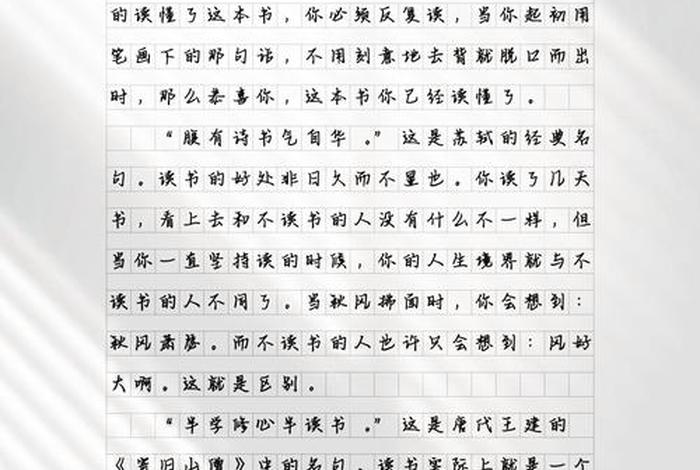 的读懂了这本书，你必须反复读，当你起初用
笔画下的那句话，不用刻意地去背就脱口而出
时，那么恭喜你，这本书你已经读懂了。
“腹有诗书气自华。”这是苏轼的经典名
句。读书的好处非日久而不显也。你读了几天
书，看上去和不读书的人没有什么不一样，但
当你一直坚持读的时候，你的人生境界就与不
读书的人不同了。当秋风拂面时，你会想到：
秋风萧瑟。而不读书的人也许只会想到：风好
大啊。这就是区别。
“半学修心半读书。”这是唐代王建的
《寄旧山僧》中的名句。读书实际上就是一个